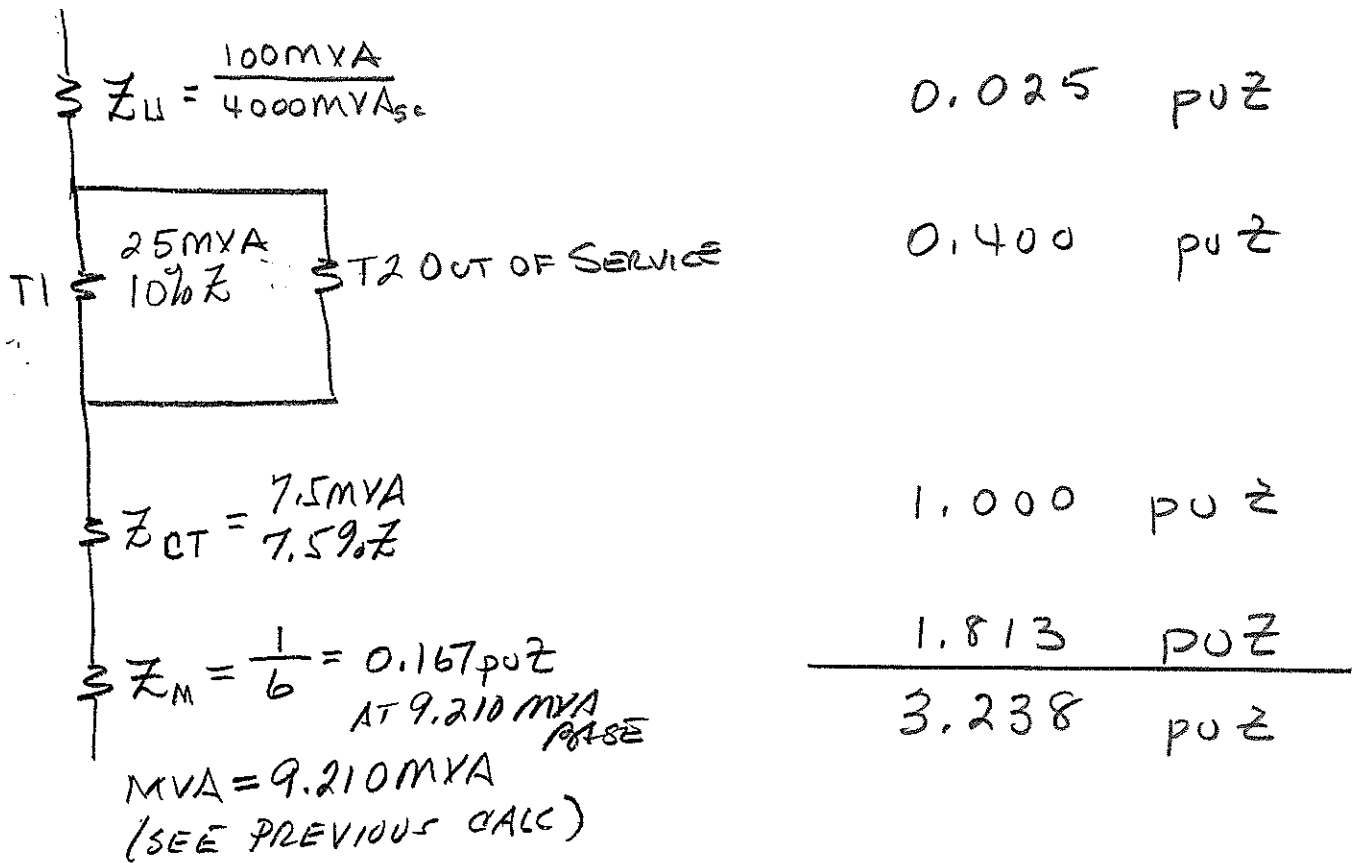 Z_U = 100MVA / 4000MVA_SC 0.025 puZ
T1 25MVA 10% Z T2 OUT OF SERVICE 0.400 puZ
Z_CT = 7.5MVA 7.5%Z 1.000 puZ
Z_M = 1/6 = 0.167puZ 1.813 puZ
AT 9.210 MVA BASE 3.238 puZ
MVA = 9.210MVA
(SEE PREVIOUS CALC)